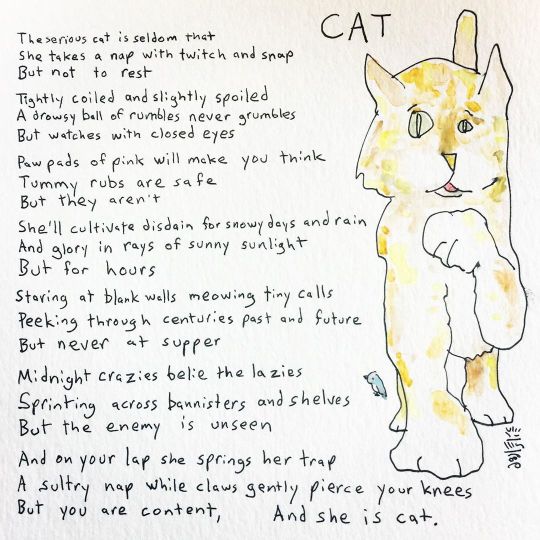 CAT
The serious cat is seldom that
She takes a nap with twitch and snap
But not to rest
Tightly coiled and slightly spoiled
A drowsy ball of rumbles never grumbles
But watches with closed eyes
Paw pads of pink will make you think
Tummy rubs are safe
But they aren't
She'll cultivate disdain for snowy days and rain
And glory in rays of sunny sunlight
But for hours
Staring at blank walls meowing tiny calls
Peeking through centuries past and future
But never at supper
Midnight crazies belie the lazies
Sprinting across bannisters and shelves
But the enemy is unseen
And on your lap she springs her trap
A sultry nap while claws gently pierce your knees
But you are content, And she is cat.